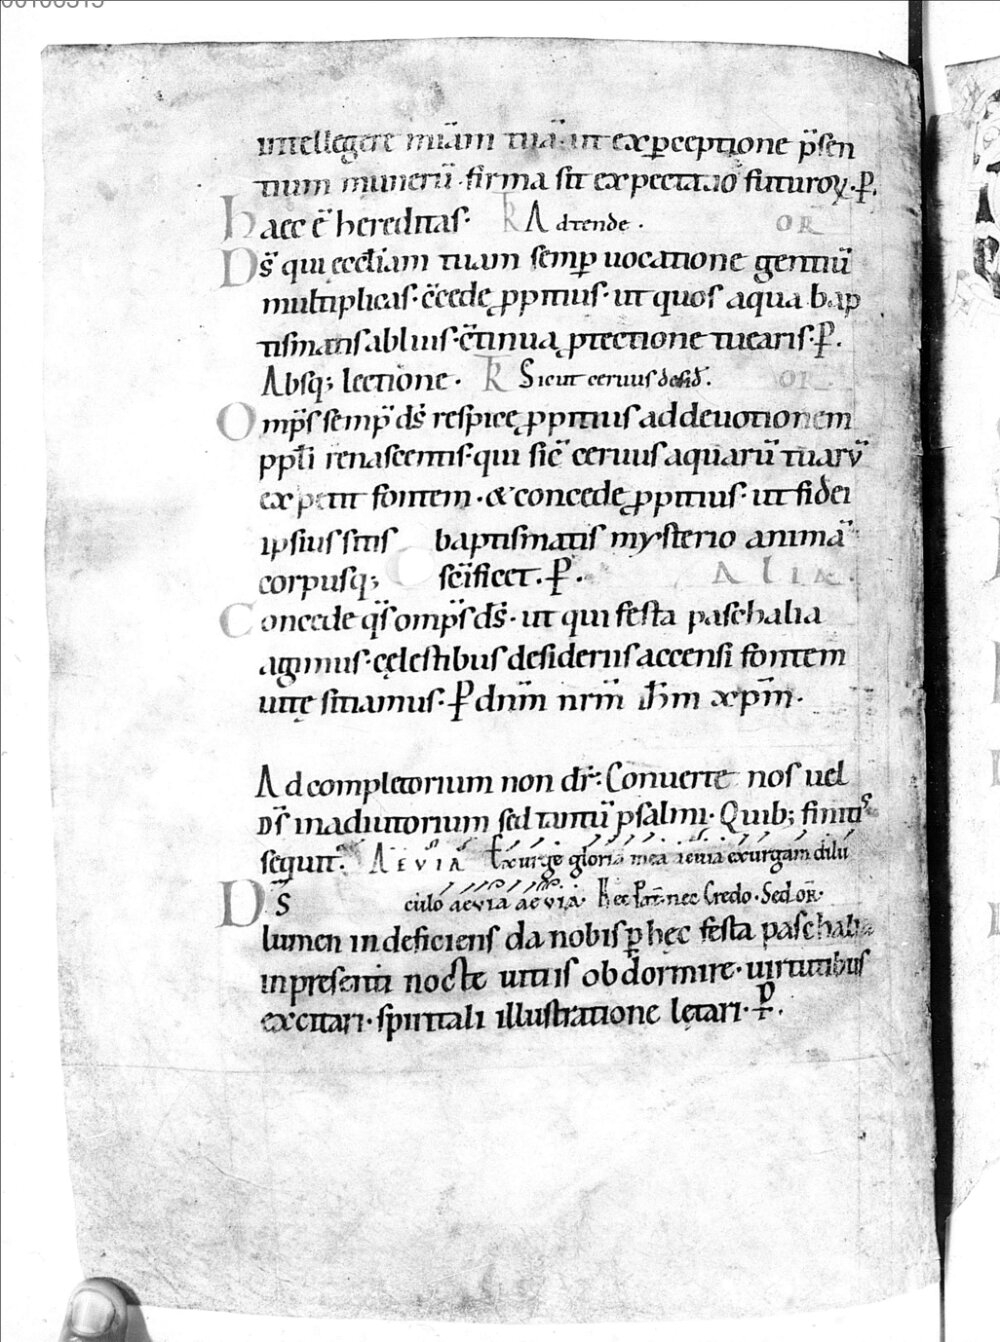 intellegere miãm tuã. ut ex pceptione p̃sen
tium munerũ. firma sit expectatio futuroꝝ. ꝑ.
haec ẽ hereditas. R Adtende. OR
Ds̃ qui ęcctiam tuam semp uocatione gentiũ
multiplicas. c̃cede ꝓpitius. ut quos aqua bap
tismatis abluis. c̃tinua ꝓtectione tuearis. ꝑ.
Absq; lectione. R Sicut ceruus desid̃. OR
Omp̃s semp̃ ds̃ respice ꝓpitius ad deuotionem
ppłi renascentis. qui sic̃ ceruus aquarũ tuarũ
expetit fontem. & concede ꝓpitius. ut fidei
ipsius sitis baptismatis mysterio animã
corpusq; sc̃ificet. ꝑ. ALIA.
Concede q̃s omp̃s ds̃. ut qui festa paschalia
agimus. cęlestibus desideriis accensi fontem
uitę sitiamus. ꝑ dnm̃ nrm̃ ihm̃ xpm̃.
Ad completorium non dr̃: Conuerte nos uel
Ds̃ inadiutorium sed tantũ psalmi. Quib; finitis
sequit̃. AEVIA Exurge gloria mea aeuia exurgam dilu
Ds̃ culo aevia aevia. Hec Pat̃. nec Credo. Sed OR̃.
lumen indeficiens da nobis ꝑ hęc festa paschalia
inpresenti nocte uitiis obdormire. uirtutibus
excitari. spiritali illustratione lętari. ꝑ.